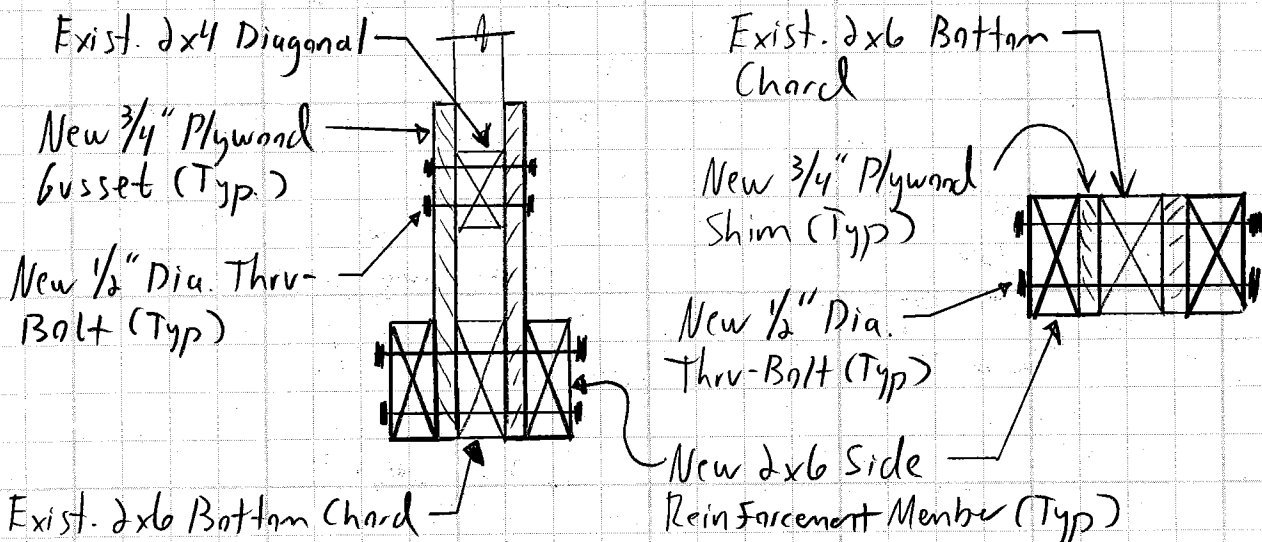 Exist. 2x4 Diagonal
New 3/4" Plywood
Gusset (Typ.)
New 1/2" Dia. Thru-
Bolt (Typ)
Exist. 2x6 Bottom Chord
Exist. 2x6 Bottom
Chord
New 3/4" Plywood
Shim (Typ)
New 1/2" Dia.
Thru-Bolt (Typ)
New 2x6 Side
Reinforcement Member (Typ)